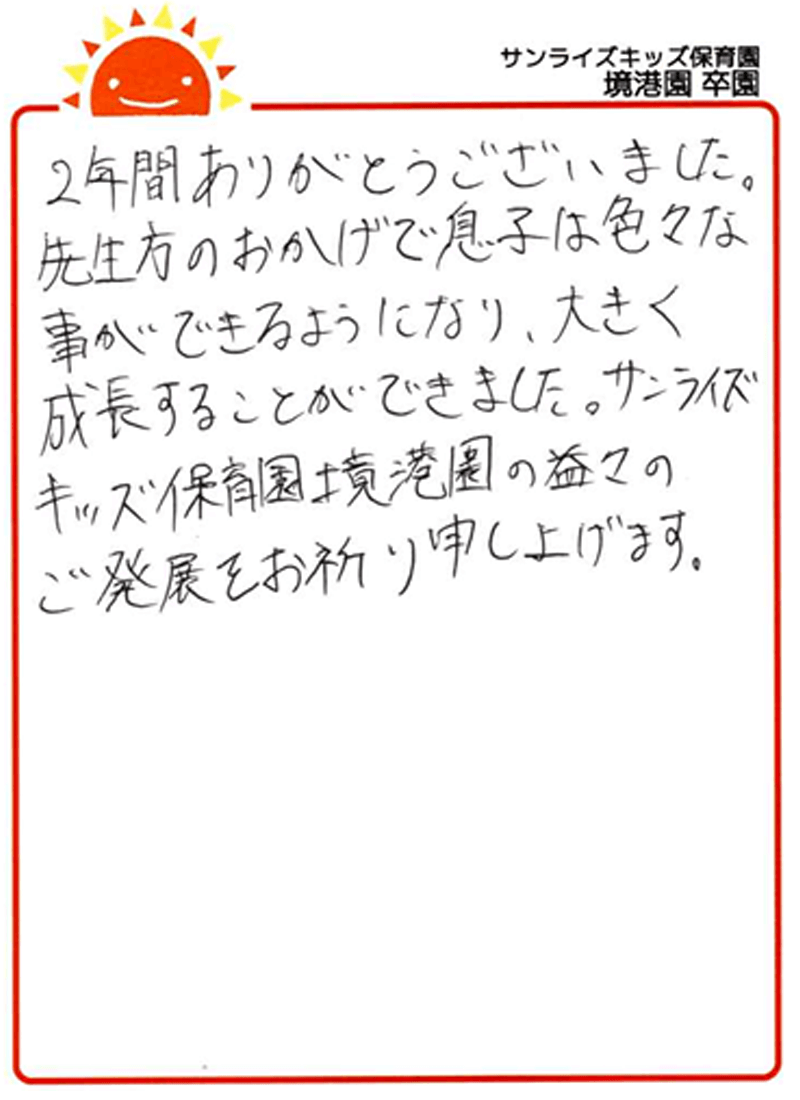 サンライズキッズ保育園
境港園 卒園
2年間ありがとうございました。
先生方のおかげで息子は色々な
事ができるようになり、大きく
成長することができました。サンライズ
キッズ保育園境港園の益々の
ご発展をお祈り申し上げます。